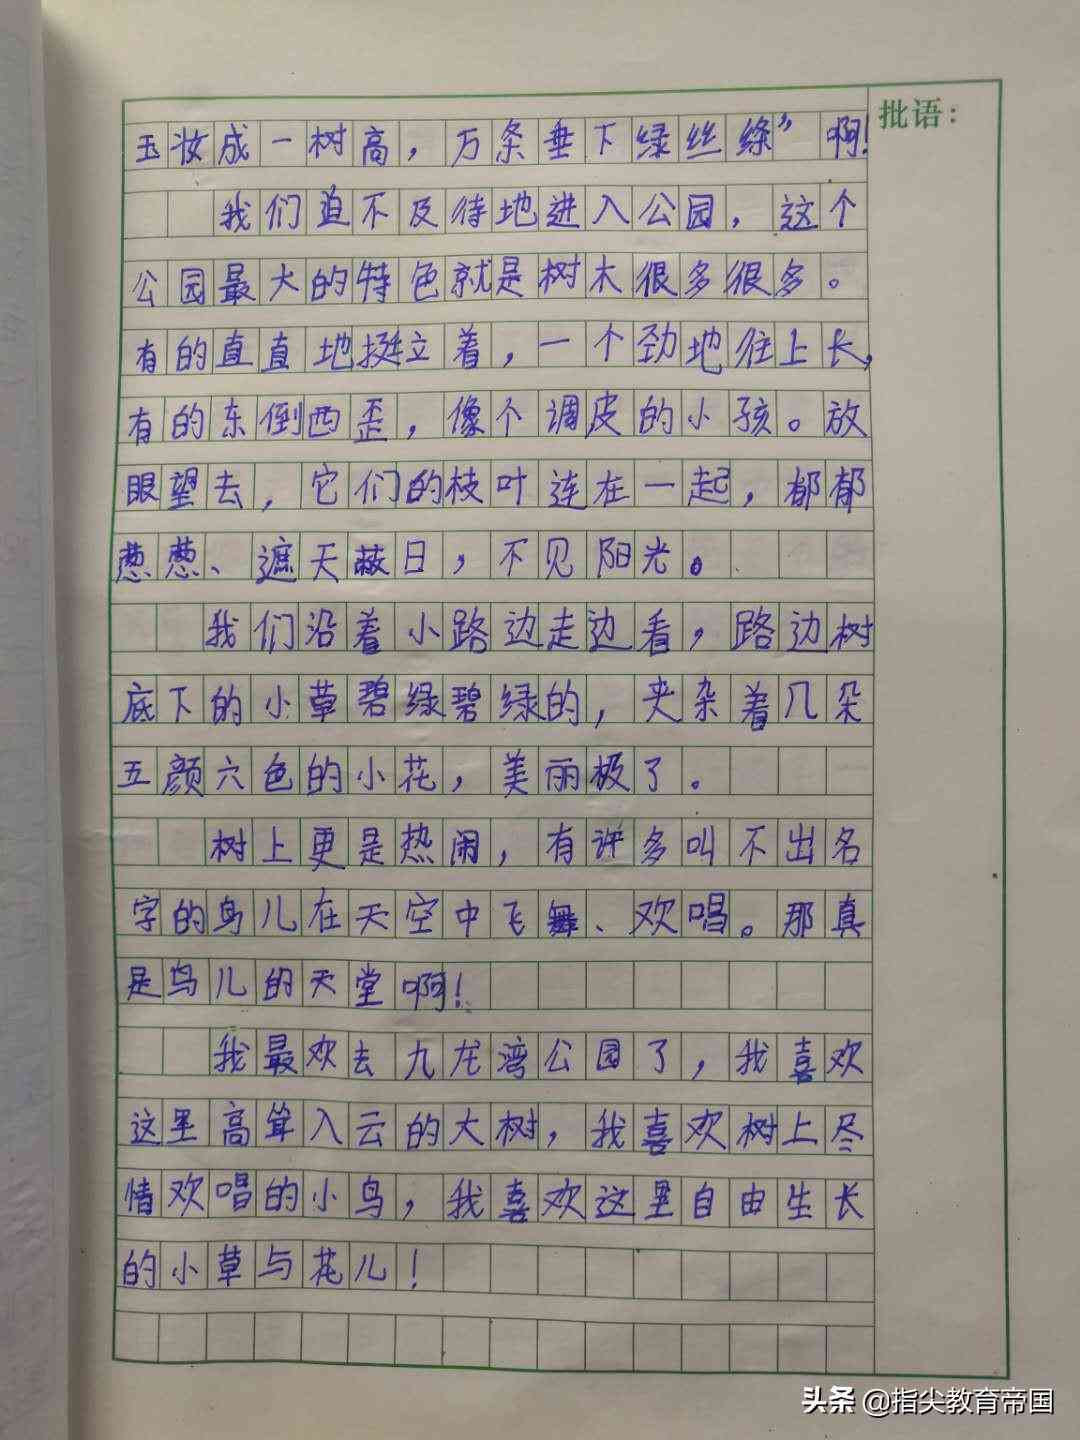 批语：
玉妆成一树高，万条垂下绿丝绦”啊！
我们迫不及待地进入公园，这个
公园最大的特色就是树木很多很多。
有的直直地挺立着，一个劲地往上长，
有的东倒西歪，像个调皮的小孩。放
眼望去，它们的枝叶连在一起，郁郁
葱葱、遮天蔽日，不见阳光。
我们沿着小路边走边看，路边树
底下的小草碧绿碧绿的，夹杂着几朵
五颜六色的小花，美丽极了。
树上更是热闹，有许多叫不出名
字的鸟儿在天空中飞舞、欢唱。那真
是鸟儿的天堂啊！
我最欢去九龙湾公园了，我喜欢
这里高耸入云的大树，我喜欢树上尽
情欢唱的小鸟，我喜欢这里自由生长
的小草与花儿！
头条 @指尖教育帝国